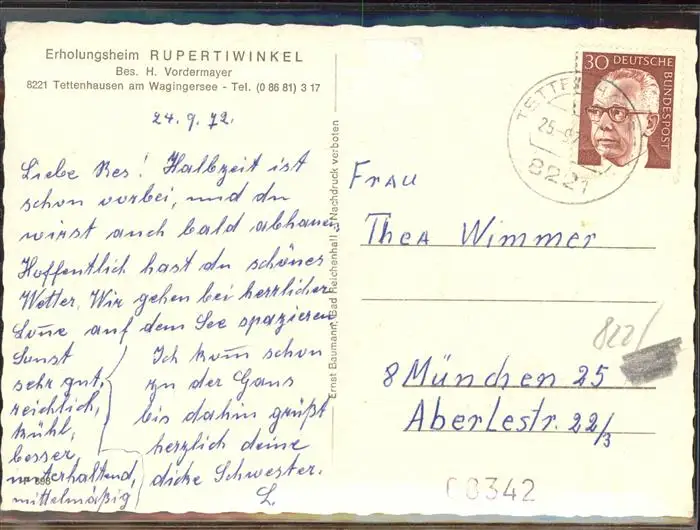 Erholungsheim RUPERTIWINKEL
Bes. H. Vordermayer
8221 Tettenhausen am Wagingersee - Tel. (0 86 81) 3 17
24.9.72.
Liebe Res! Halbzeit ist
schon vorbei, und du
wirst auch bald abhauen,
Hoffentlich hast du schönes
Wetter. Wir gehen bei herrlicher
auf dem See spazieren
Sonst
sehr gut,
reichlich,
kühl,
besser
unterhaltend,
mittelmäßig
Ich kom̄ schon
zu der Gans
bis dahin grüßt
herzlich deine
dicke Schwester.
L.
Ernst Baumann, Bad Reichenhall, Nachdruck verboten
30 DEUTSCHE
BUNDESPOST
25.-9.
8221
Frau
Thea Wimmer
822/
8 München 25
Aberlestr. 22/3
08342